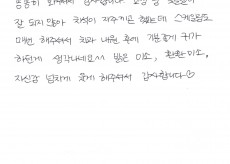 잘 되지 않아 치석이 자주끼곤 했는데 스케일링도
매번 해주셔서 치과 내원 후에 기분좋게 귀가
하던게 생각나네요^^ 밝은 미소, 환한 미소,
자신감 넘치게 웃게 해주셔서 감사합니다♡